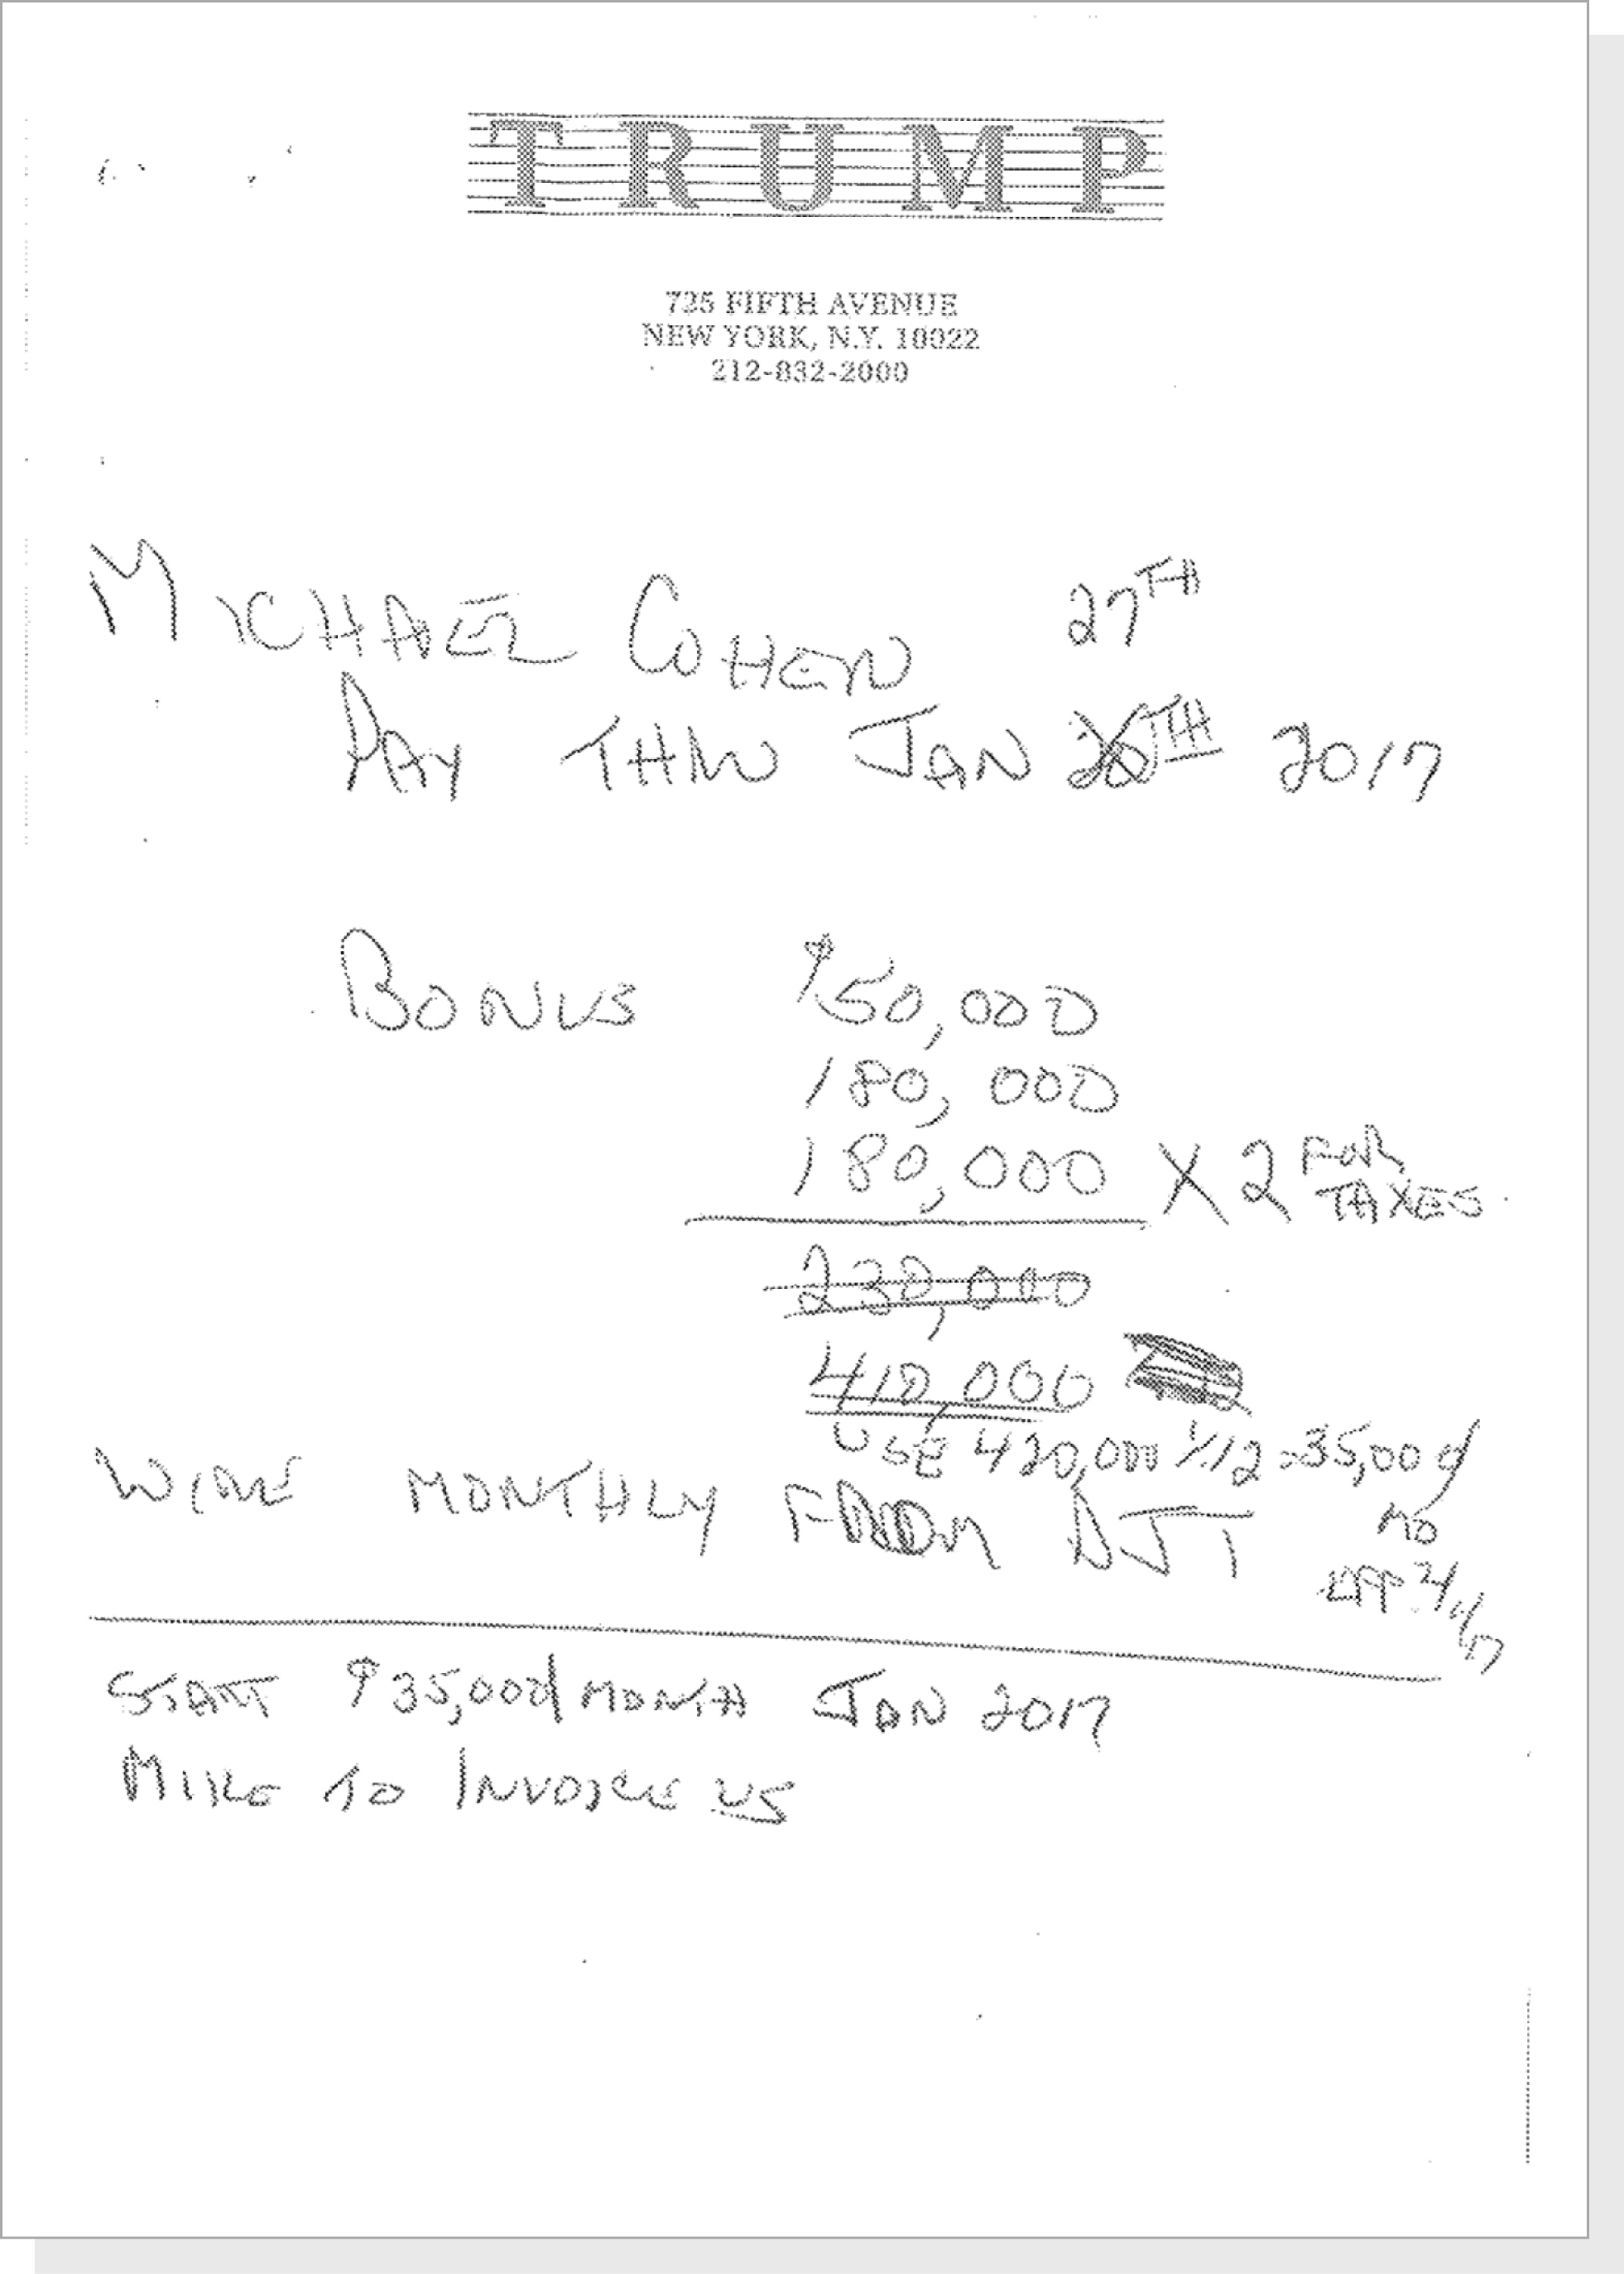 TRUMP
725 FIFTH AVENUE
NEW YORK, N.Y. 10022
212-832-2000
MICHAEL COHEN
27TH
PAY THRU JAN 20TH 2017
BONUS $50,000
180,000
180,000 X 2 FOR TAXES
230,000
410,000
USE 420,000 ÷ 12 = 35,000/
MO
WIRE MONTHLY FROM DJT
EFF 2/1/17
START $35,000/MONTH JAN 2017
MIKE TO INVOICE US